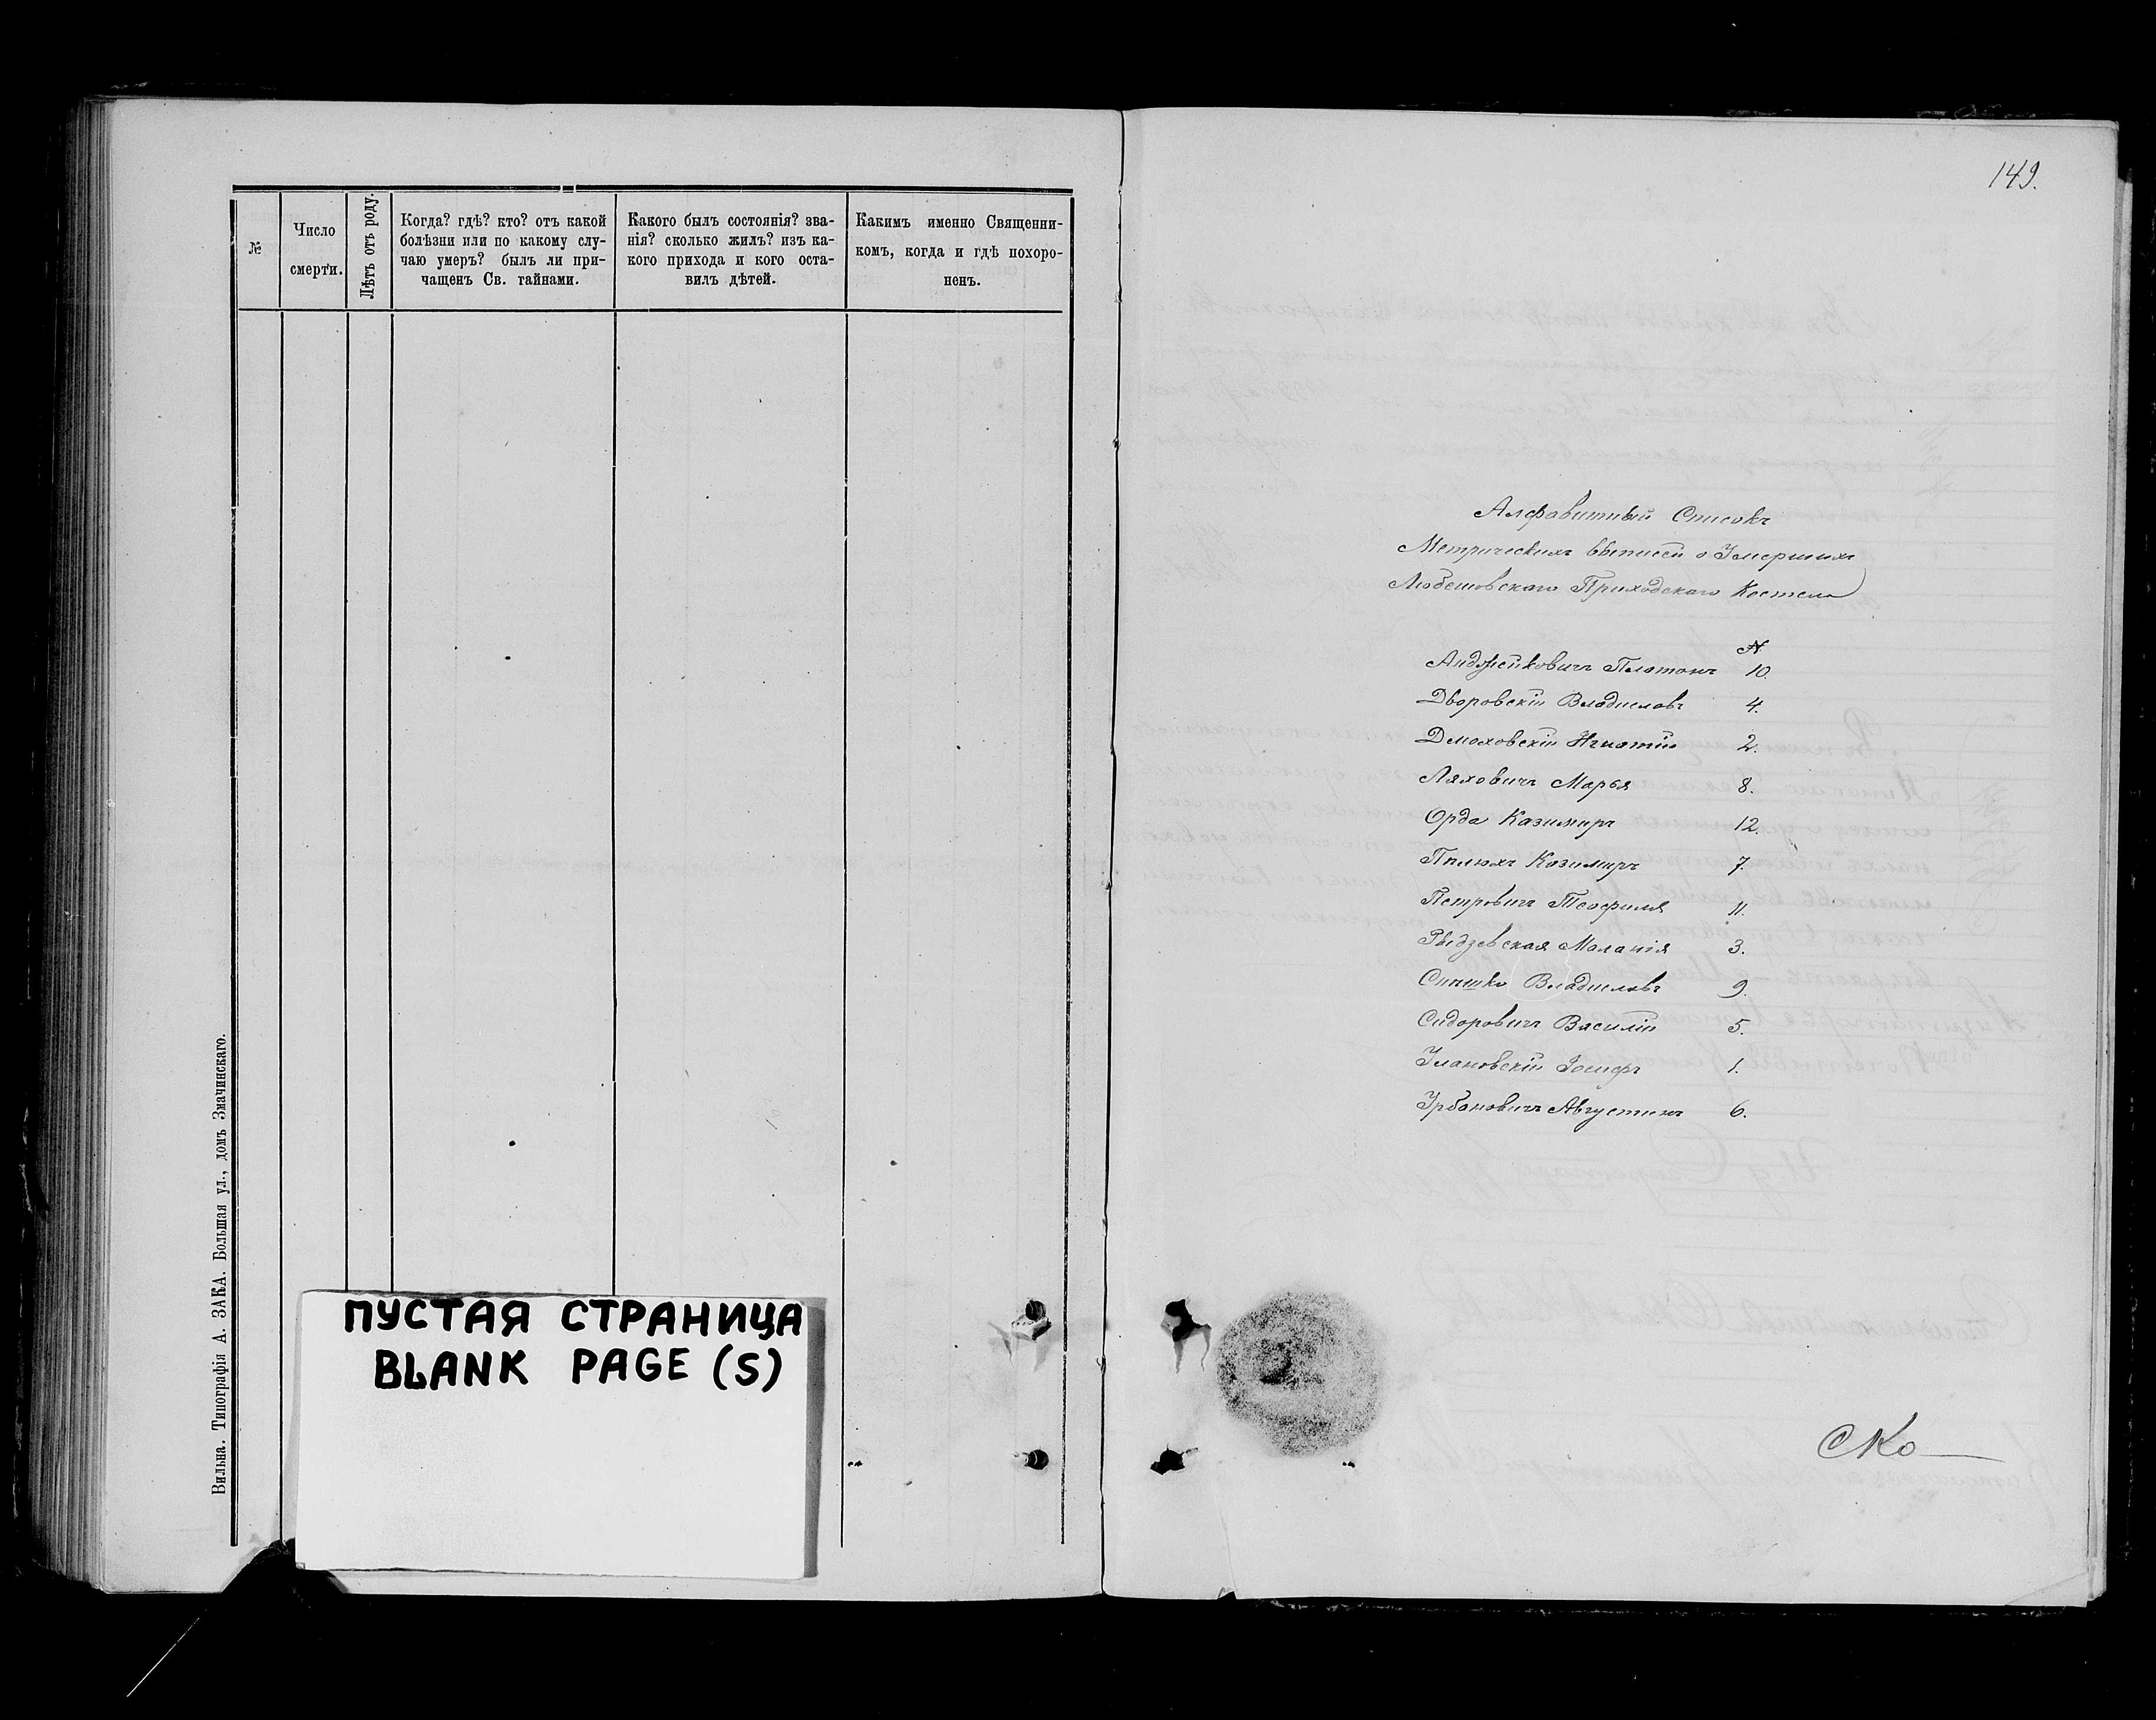 №
Число
смерти.
Лѣтъ отъ роду.
Когда? гдѣ? кто? отъ какой
болѣзни или по какому слу-
чаю умеръ? былъ ли при-
чащенъ Св. тайнами.
Какого былъ состоянія? зва-
нія? сколько жилъ? изъ ка-
кого прихода и кого оста-
вилъ дѣтей.
Какимъ именно Священни-
комъ, когда и гдѣ похоро-
ненъ.
Вильна. Типографія А. ЗАКА. Большая ул., домъ Змачинскаго.
ПУСТАЯ СТРАНИЦА
BLANK PAGE (S)
149.
Алфавитный Списокъ
Метрическихъ выписей о Умершихъ
Любешовскаго Приходскаго Костела
№
Анджейковичъ Платонъ 10.
Дворовскій Владиславъ 4.
Дмоховскій Игнатій 2.
Ляховичъ Марья 8.
Орда Казимиръ 12.
Пилюхъ Казимиръ 7.
Петровичъ Теофиля 11.
Рыдзевская Маланія 3.
Владиславъ 9.
Сидоровичъ Василій 5.
Улановскій Іосифъ 1.
Урбановичъ Августинъ 6.